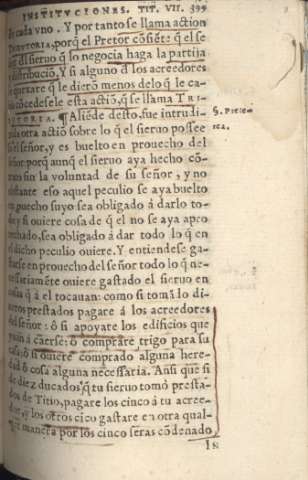 INSTITVCIONES. TIT. VII. 399
de cada vno. Y por tanto se llama action
TRIBVTORIA, porq̃ el Pretor cõsiẽte q̃ el se
ñor dl sieruo q̃ lo negocia haga la partija
y distribuciõ, Y si alguno dl los acreedores
se quexare q̃ le dierõ menos dlo q̃ le ca-
bia cõcedesele esta actiõ, q̃ se llama TRI-
BVTORIA. ¶Aliẽde desto, fue introdu-
zida otra actiõ sobre lo q̃ el sieruo possee
del señor, y es buelto en prouecho del
señor porq̃ aunq̃ el sieruo aya hecho cõ-
trato sin la voluntad de su señor, y no
obstante eso aquel peculio se aya buelto
en puecho suyo sea obligado á darlo to-
do: y si ouiere cosa de q̃ el no se aya apro
uechado, sea obligado á dar todo lo q̃ en
el dicho peculio ouiere. Y entiendese ga-
starse en prouecho del señor todo lo q̃ ne-
cessariamẽte ouiere gastado el sieruo en
cosa q̃ á el tocauan: como si tomã lo di-
neros prestados pagare á los acreedores
del señor: ò si apoyare los edificios que
yuan á caerse: ò comprare trigo para su
casa, ò si ouiere comprado alguna here-
dad ò cosa alguna necessaria. Ansi que si
de diez ducados q̃ tu sieruo tomó presta-
dos de Titio, pagare los cinco á tu acree-
dor, y los otros cĩco gastare en otra qual-
quie manera por los cinco seras cõdenado
§. Præte-
rea.